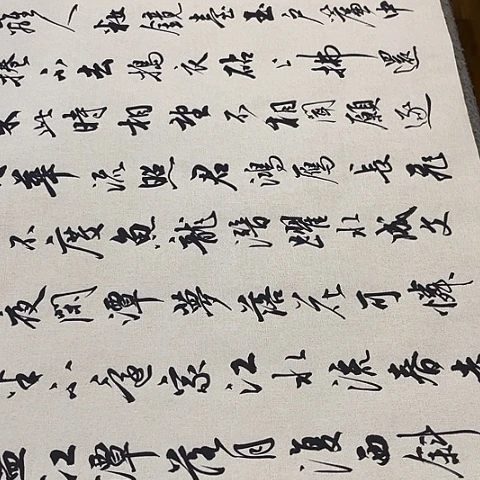 離人粧鏡臺玉戶簾中
捲不去搗衣砧上拂還
來此時相望不相聞願逐
華流照君鴻鴈長飛
不度魚龍潛躍水成文
夜閑潭夢落花可憐
半不還家江水流春去
盡江潭落月復西斜